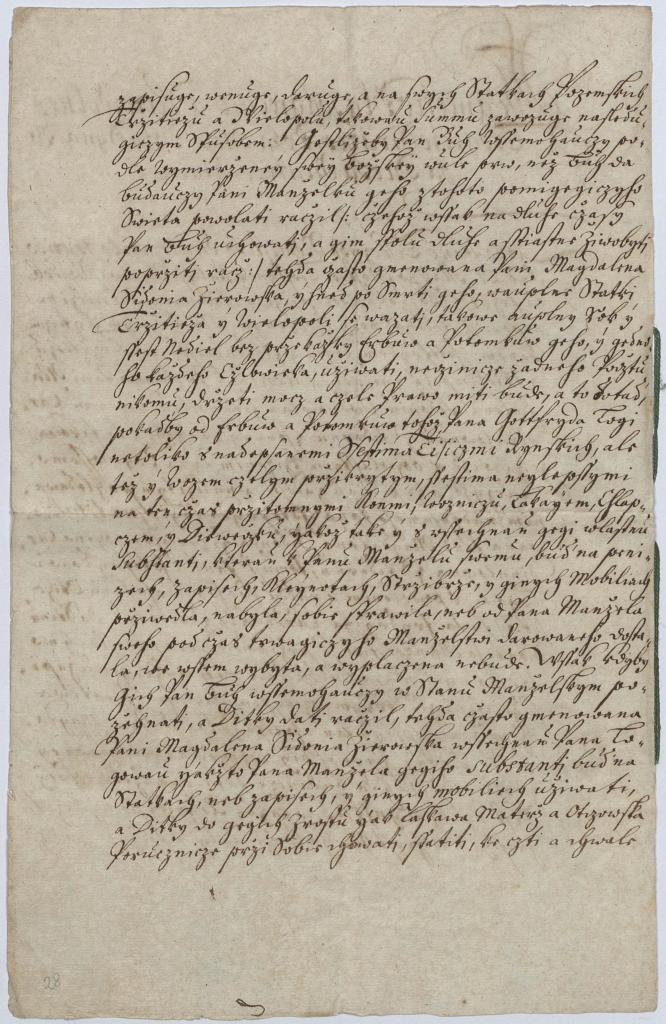 zapisuge, wenuge, daruge, a na swych Statkach Pozemskich
Trzitiezu a Wielopolu, takowau Summu zawozuge nasledu-
giczym Spusobem: Gestlizeby Pan Buh Wssemohauczy po-
dle Wymierzeney swey Bozskey wule prw, nez Buh da
budauczy Pani Manzelku geho ztohoto pomigegiczyho
Swieta powolati raczil /: czehoz wssak na dluhe czasy
Pan Buh uchowati, a gim spolu dluhe a sstiastne ziwobyti
poprziti racz :/ tehda czasto gmenowana Pani Magdalena
Sidonia Zierowska, y hned po Smrti geho, w auplne Statki
Trzitieza y Wielopoli se wazati, takowe auplny Rok y
ssest Nediel bez przekazky Erbuw a Potomkuw geho, y gedno-
ho kazdeho Czlowieka, uziwati, neczinicze zadneho Pocztu
nikomu, drzeti mocz a czele Prawo miti bude, a to dotad,
pokadzby od Erbuw a Potomkuw tohoz Pana Gottfryda Togi
netoliko s nadepsanemi Ssestima Tisiczmi Rynskich, ale
tez y Wozem czelym przikrytym, ssestima neylepssymi
na ten czas przitomnymi Konmi, Wozniczu, Lakayem, Chlap-
czem, y Diewczku, yakoz take y s wssechnau gegi wlastnu
Substanti, kterau k Panu Manzelu swemu, bud na peni-
zech, zapisech, Kleynotach, Strzibrze, y ginych Mobiliach
prziwedla, nabyla, sobie sprawila, neb od Pana Manzela
sweho pod czas trwagiczyho Manzelstwi darowaneho dosta-
la, we wssem wybyta, a wyplaczena nebude. Wssak kdyby
Gich Pan Buh wssemohauczy w Stanu Manzelskym po-
zehnati, a Ditky dati raczil, tehda czasto gmenowana
Pani Magdalena Sidonia Zierowska wssechnau Pana To-
gowau yakzto Pana Manzela gegiho Substanti bud na
Statkach, neb zapisech, y ginych mobiliech uziwati,
a Ditky do gegich Zrostu yak laskawa Materz a Otczowska
Porucznicze przi Sobie chowati, ssatiti, ke czti a chwale
28